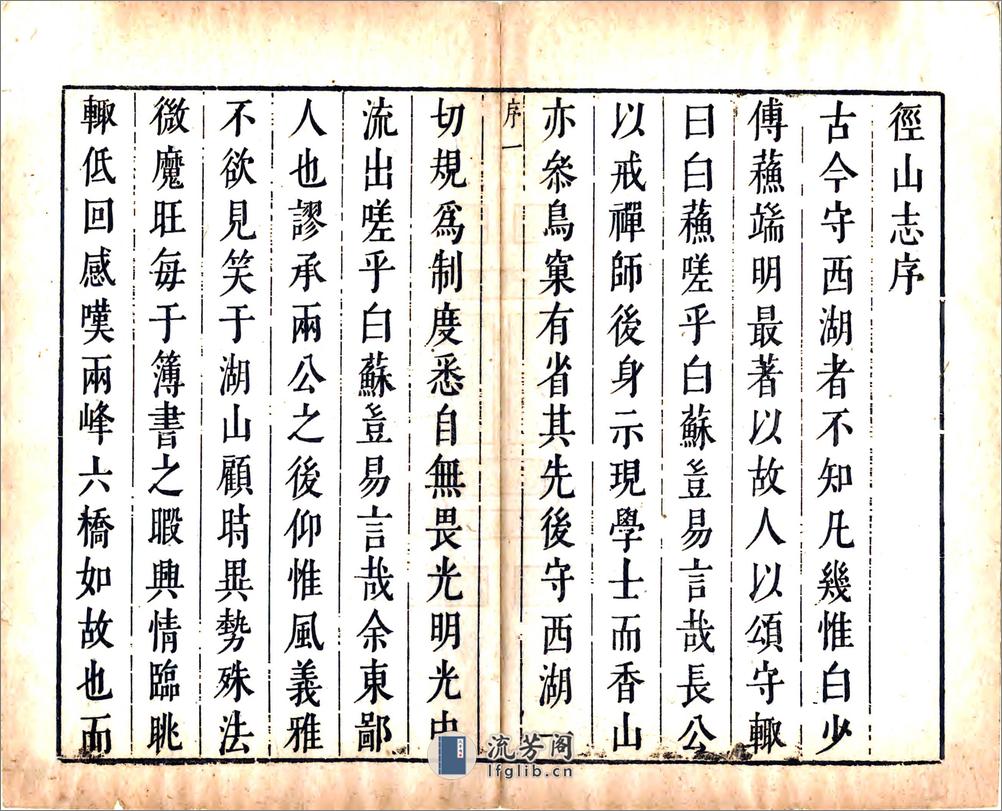 徑山志序
古今守西湖者不知凡幾惟白少
傅蘓端明最著以故人以頌守輙
曰白蘓嗟乎白蘇豈易言哉長公
以戒禪師後身示現學士而香山
亦叅鳥窠有省其先後守西湖
序一
切規爲制度悉自無畏光明光中
流出嗟乎白蘇豈易言哉余東鄙
人也謬承兩公之後仰惟風義雅
不欲見笑于湖山顧時異勢殊法
微魔旺每于簿書之暇興情臨眺
輙低回感嘆兩峰六橋如故也而
流芳阁
lfglib.cn